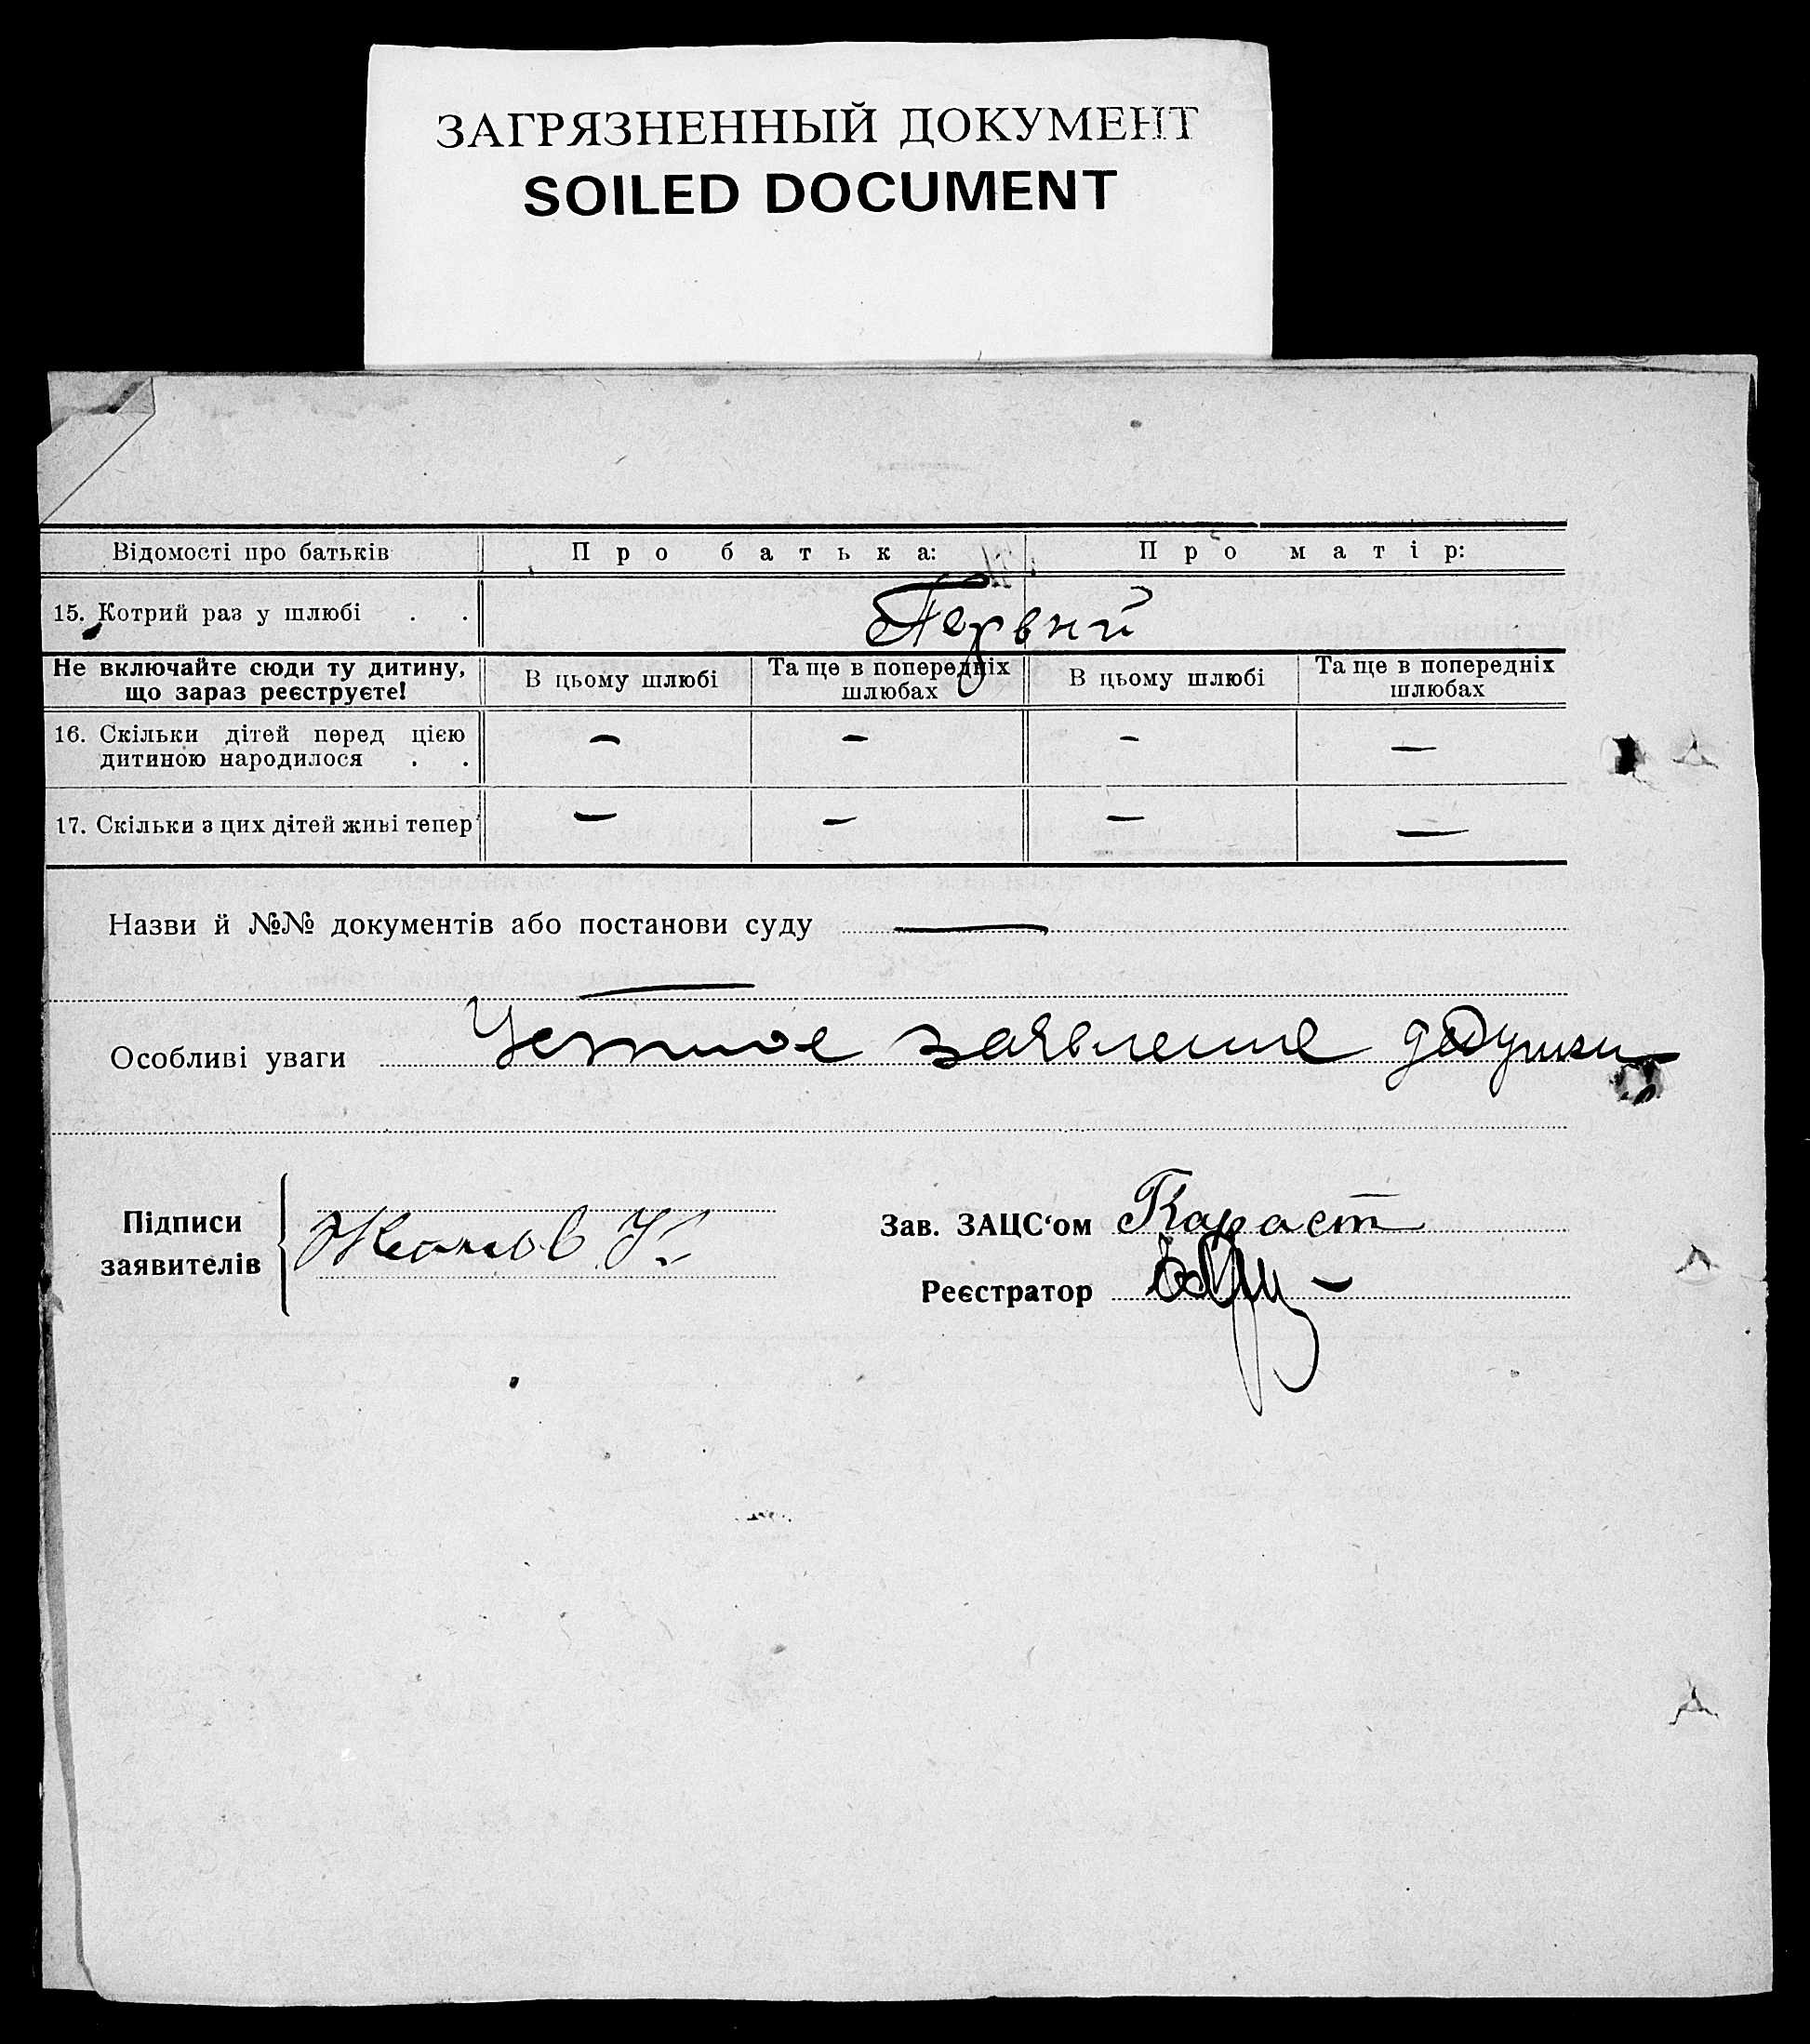 ЗАГРЯЗНЕННЫЙ ДОКУМЕНТ
SOILED DOCUMENT
Відомості про батьків Про батька: Про матір:
15. Котрий раз у шлюбі . . Первий
Не включайте сюди ту дитину, що зараз реєструєте! В цьому шлюбі Та ще в попередніх шлюбах В цьому шлюбі Та ще в попередніх шлюбах
16. Скільки дітей перед цією — — — —
дитиною народилося . .
17. Скільки з цих дітей живі тепер — — — —
Назви й №№ документів або постанови суду —
—
Особливі уваги Устное заявление дедушки
Підписи заявителів
Зав. ЗАЦС‘ом Караст
Реєстратор